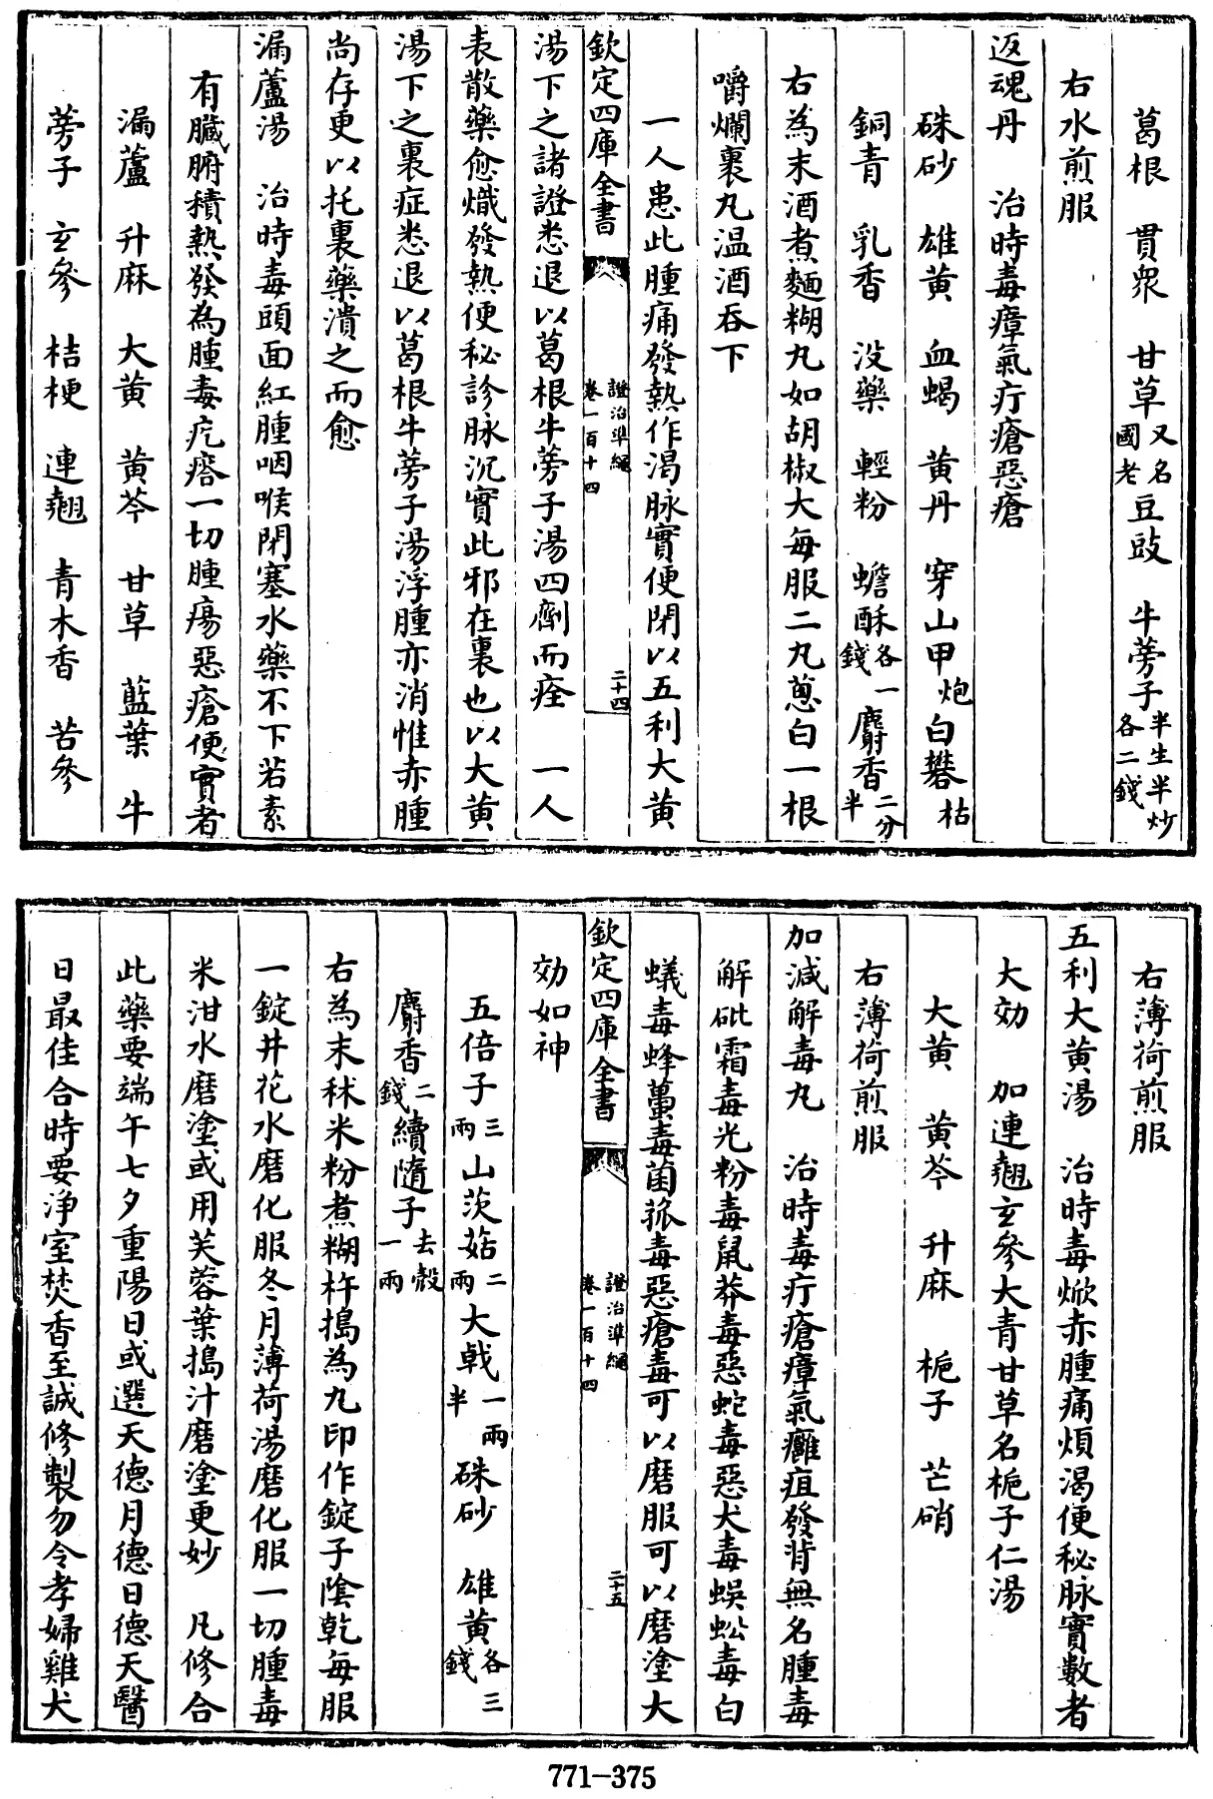 葛根　貫衆　甘草又名國老豆豉　牛蒡子半生半炒各二錢
右水煎服
返魂丹　治時毒瘴氣疔瘡惡瘡
硃砂　雄黄　血蝎　黄丹　穿山甲炮白礬枯
銅青　乳香　没藥　輕粉　蟾酥各一錢麝香二分半
右為末酒煮麵糊丸如胡椒大每服二丸蔥白一根
嚼爛裹丸温酒吞下
一人患此腫痛發熱作渴脉實便閉以五利大黄
欽定四庫全書
證治準繩
卷一百十四
二十四
湯下之諸證悉退以葛根牛蒡子湯四劑而痊　一人
表散藥愈熾發熱便秘診脉沉實此邪在裏也以大黄
湯下之裏症悉退以葛根牛蒡子湯浮腫亦消惟赤腫
尚存更以托裏藥潰之而愈
漏蘆湯　治時毒頭面紅腫咽喉閉塞水藥不下若素
有臟腑積熱發為腫毒疙瘩一切腫瘍惡瘡便實者
漏蘆　升麻　大黄　黄芩　甘草　藍葉　牛
蒡子　玄參　桔梗　連翹　青木香　苦參
右薄荷煎服
五利大黄湯　治時毒焮赤腫痛煩渴便秘脉實數者
大効　加連翹玄參大青甘草名梔子仁湯
大黄　黄芩　升麻　梔子　芒硝
右薄荷煎服
加減解毒丸　治時毒疔瘡瘴氣癰疽發背無名腫毒
解砒霜毒光粉毒鼠莽毒惡蛇毒惡犬毒蜈蚣毒白
蟻毒蜂蠆毒菌蓀毒惡瘡毒可以磨服可以磨塗大
欽定四庫全書
證治準繩
卷一百十四
二十五
効如神
五倍子三兩山茨菇二兩大戟一兩半　硃砂　雄黄各三錢
麝香二錢續隨子去殼一兩
右為末秫米粉煮糊杵搗為丸印作錠子陰乾每服
一錠井花水磨化服冬月薄荷湯磨化服一切腫毒
米泔水磨塗或用芙蓉葉搗汁磨塗更妙　凡修合
此藥要端午七夕重陽日或選天德月德日德天醫
日最佳合時要淨室焚香至誠修製勿令孝婦雞犬
771-375